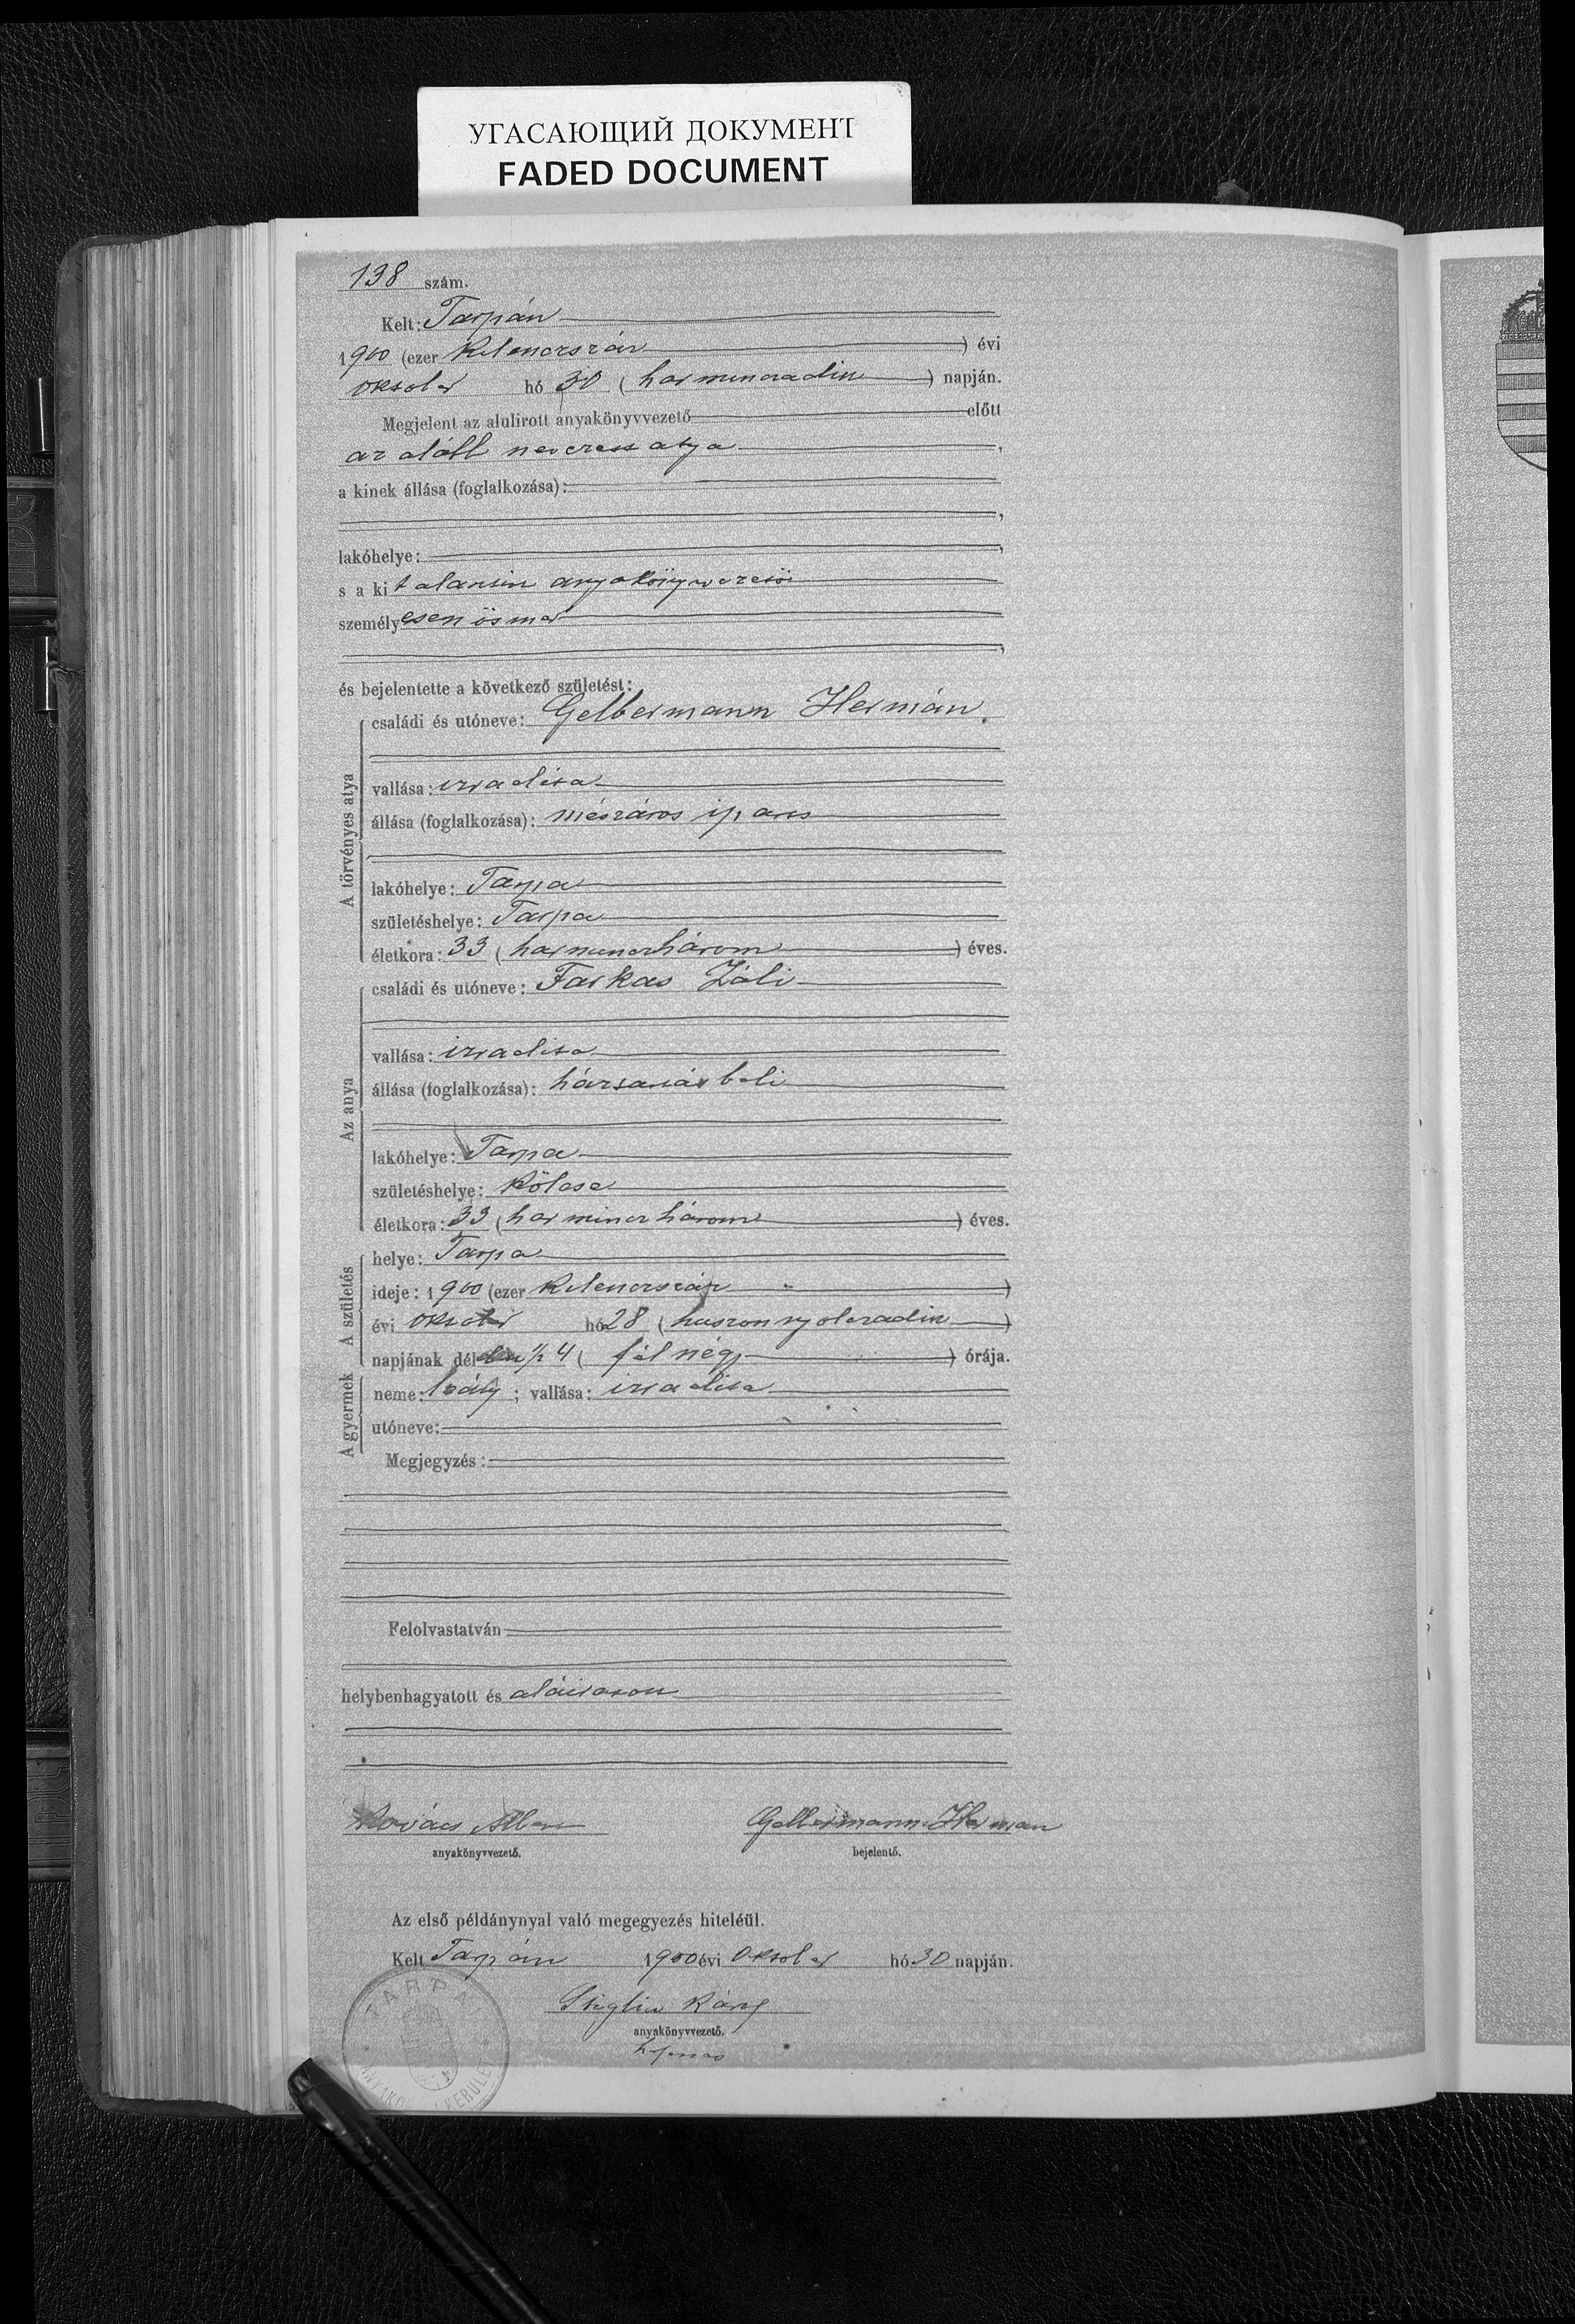 УГАСАЮЩИЙ ДОКУМЕНТ
FADED DOCUMENT
138 szám.
Kelt: Tarpán
1900 (ezer kilenczszáz ) évi
október hó 30 (harminczadik ) napján.
Megjelent az alulirott anyakönyvvezető előtt
az alább nevezett atya ,
a kinek állása (foglalkozása):
,
lakóhelye: ,
s a kit alantirt anyakönyvvezető
személyesen ösmer
,
és bejelentette a következő születést:
A törvényes atya
családi és utóneve: Gelbermann Hermán.
vallása: izraelita
állása (foglalkozása): mészáros iparos
lakóhelye: Tarpa
születéshelye: Tarpa
életkora: 33 (harminczhárom ) éves.
Az anya
családi és utóneve: Farkas Záli
vallása: izraelita
állása (foglalkozása): háztartásbeli
lakóhelye: Tarpa
születéshelye: Kölcse
életkora: 33 (harminczhárom ) éves.
A születés
helye: Tarpa
ideje: 1900 (ezer kilenczszáz )
évi október hó 28 (huszonnyolczadik )
napjának dél 1/2 4 ( fél négy ) órája.
A gyermek
neme: leány ; vallása: izraelita
utóneve:
Megjegyzés:
Felolvastatván
helybenhagyatott és aláiratott
Kovács Albert
anyakönyvvezető.
Gelbermann Herman
bejelentő.
Az első példánynyal való megegyezés hiteléül.
Kelt Tarpán 1900 évi október hó 30 napján.
Károly
anyakönyvvezető.
TARPAI
ANYAKÖ KERÜLET